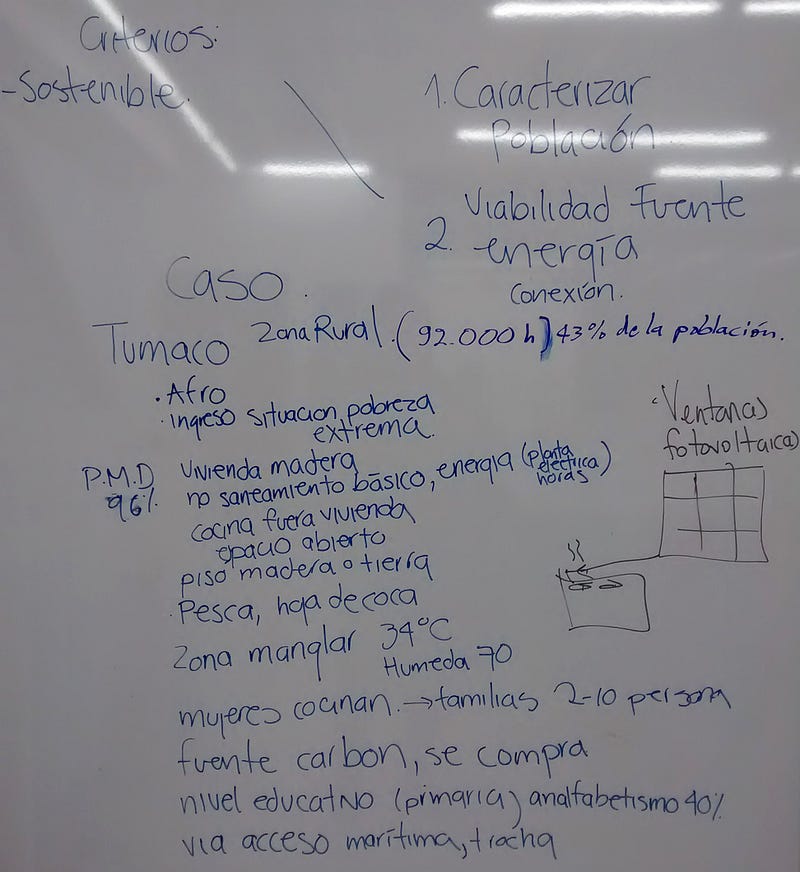 Criterios:
-Sostenible.
1. Caracterizar
Población
2. Viabilidad Fuente
energía
conexión.
Caso.
Tumaco Zona Rural. (92.000 h) 43% de la población.
· Afro
· ingreso situacion pobreza
extrema.
P.M.D
96%
Vivienda madera
no saneamiento básico, energia (planta
electrica
horas)
cocina fuera vivienda
epacio abierto
piso madera o tierra
· Pesca, hoja de coca
Zona manglar 34°C
Humeda 70
mujeres cocinan. → familias 2-10 persona
fuente carbon, se compra
nivel educativo (primaria) analfabetismo 40%
via acceso marítima, trocha
· Ventanas
fotovoltaica)